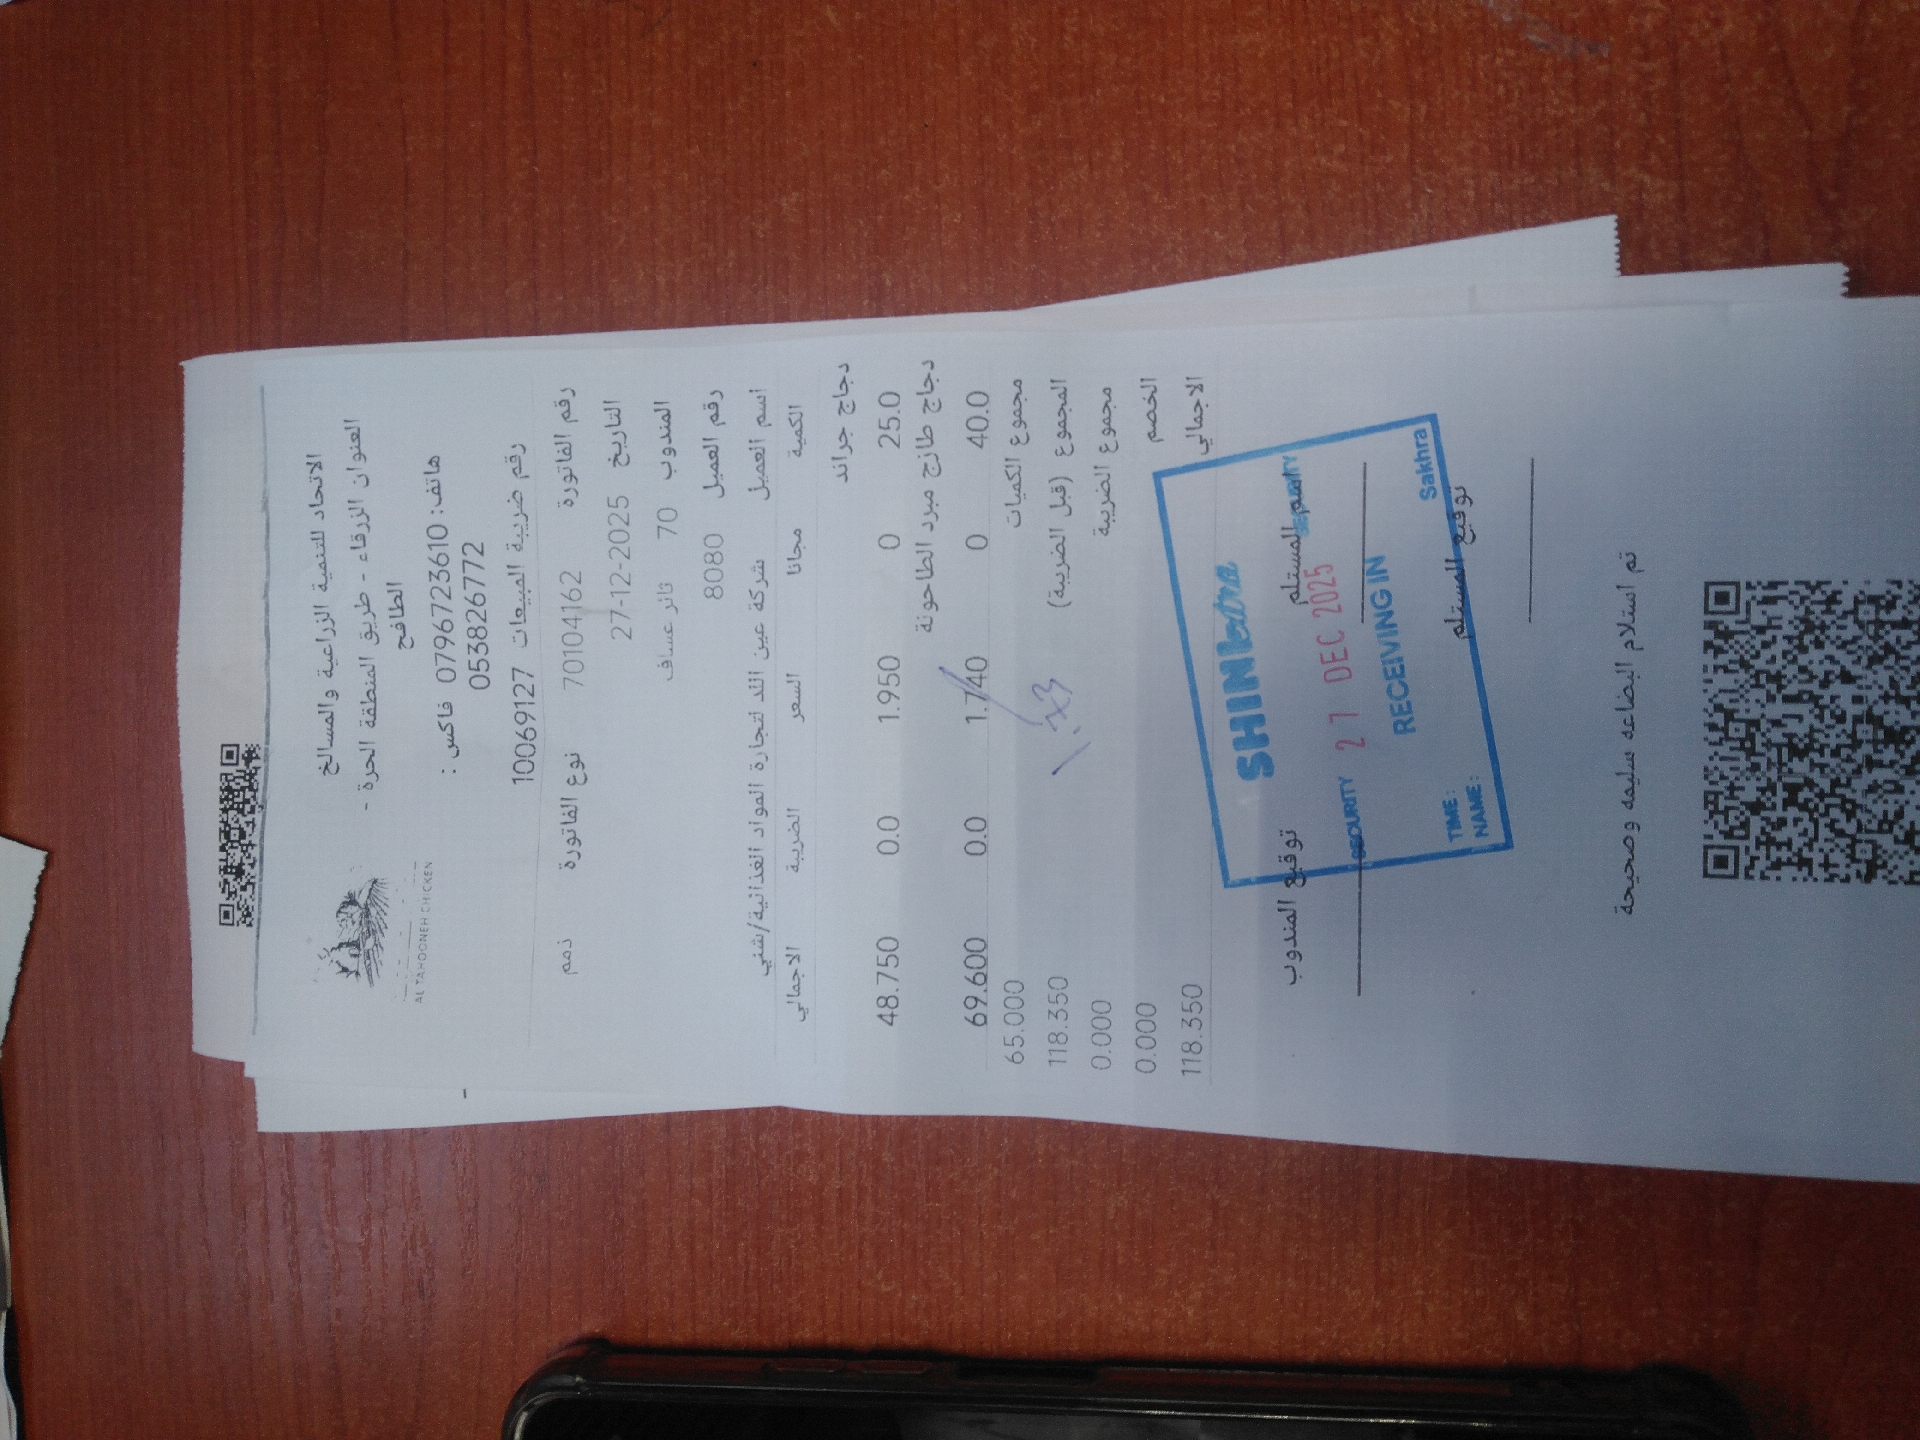 AL TAHOONEH CHICKEN
الاتحاد للتنمية الزراعية والمسالخ
العنوان الزرقاء - طريق المنطقة الحرة -
الطافح
هاتف: 0796723610 فاكس :
053826772
رقم ضريبة المبيعات 10069127
رقم الفاتورة 70104162 نوع الفاتورة ذمم
التاريخ 27-12-2025
المندوب 70 ثائر عساف
رقم العميل 8080
اسم العميل شركة عين الند لتجارة المواد الغذائية/شني
الكمية مجانا السعر الضريبة الاجمالي
دجاج جراند
25.0 0 1.950 0.0 48.750
دجاج طازج مبرد الطاحونة
40.0 0 1.740 0.0 69.600
مجموع الكميات 65.000
المجموع (قبل الضريبة) 118.350
مجموع الضريبة 0.000
الخصم 0.000
الاجمالي 118.350
اسم المستلم توقيع المندوب
SHINIextra
SECURITY
SECURITY 27 DEC 2025
RECEIVING IN
TIME :
NAME : Sakhra
توقيع المستلم
تم استلام البضاعه سليمه وصحيحة